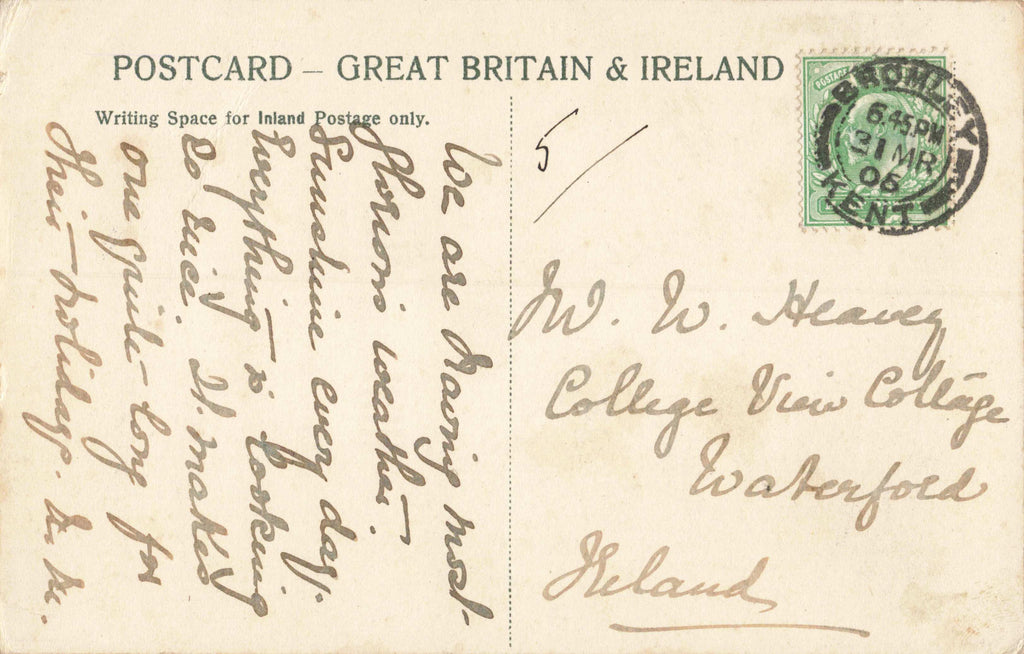 POSTCARD – GREAT BRITAIN & IRELAND
Writing Space for Inland Postage only.
We are having most
Glorious weather.
Sunshine every day.
Everything is looking
so nice it makes
one quite long for
their holiday.
5/
BROMLEY
6.45PM
31 MR
06
KENT
POSTAGE
W. Heavey
College View Cottage
Waterford
Ireland